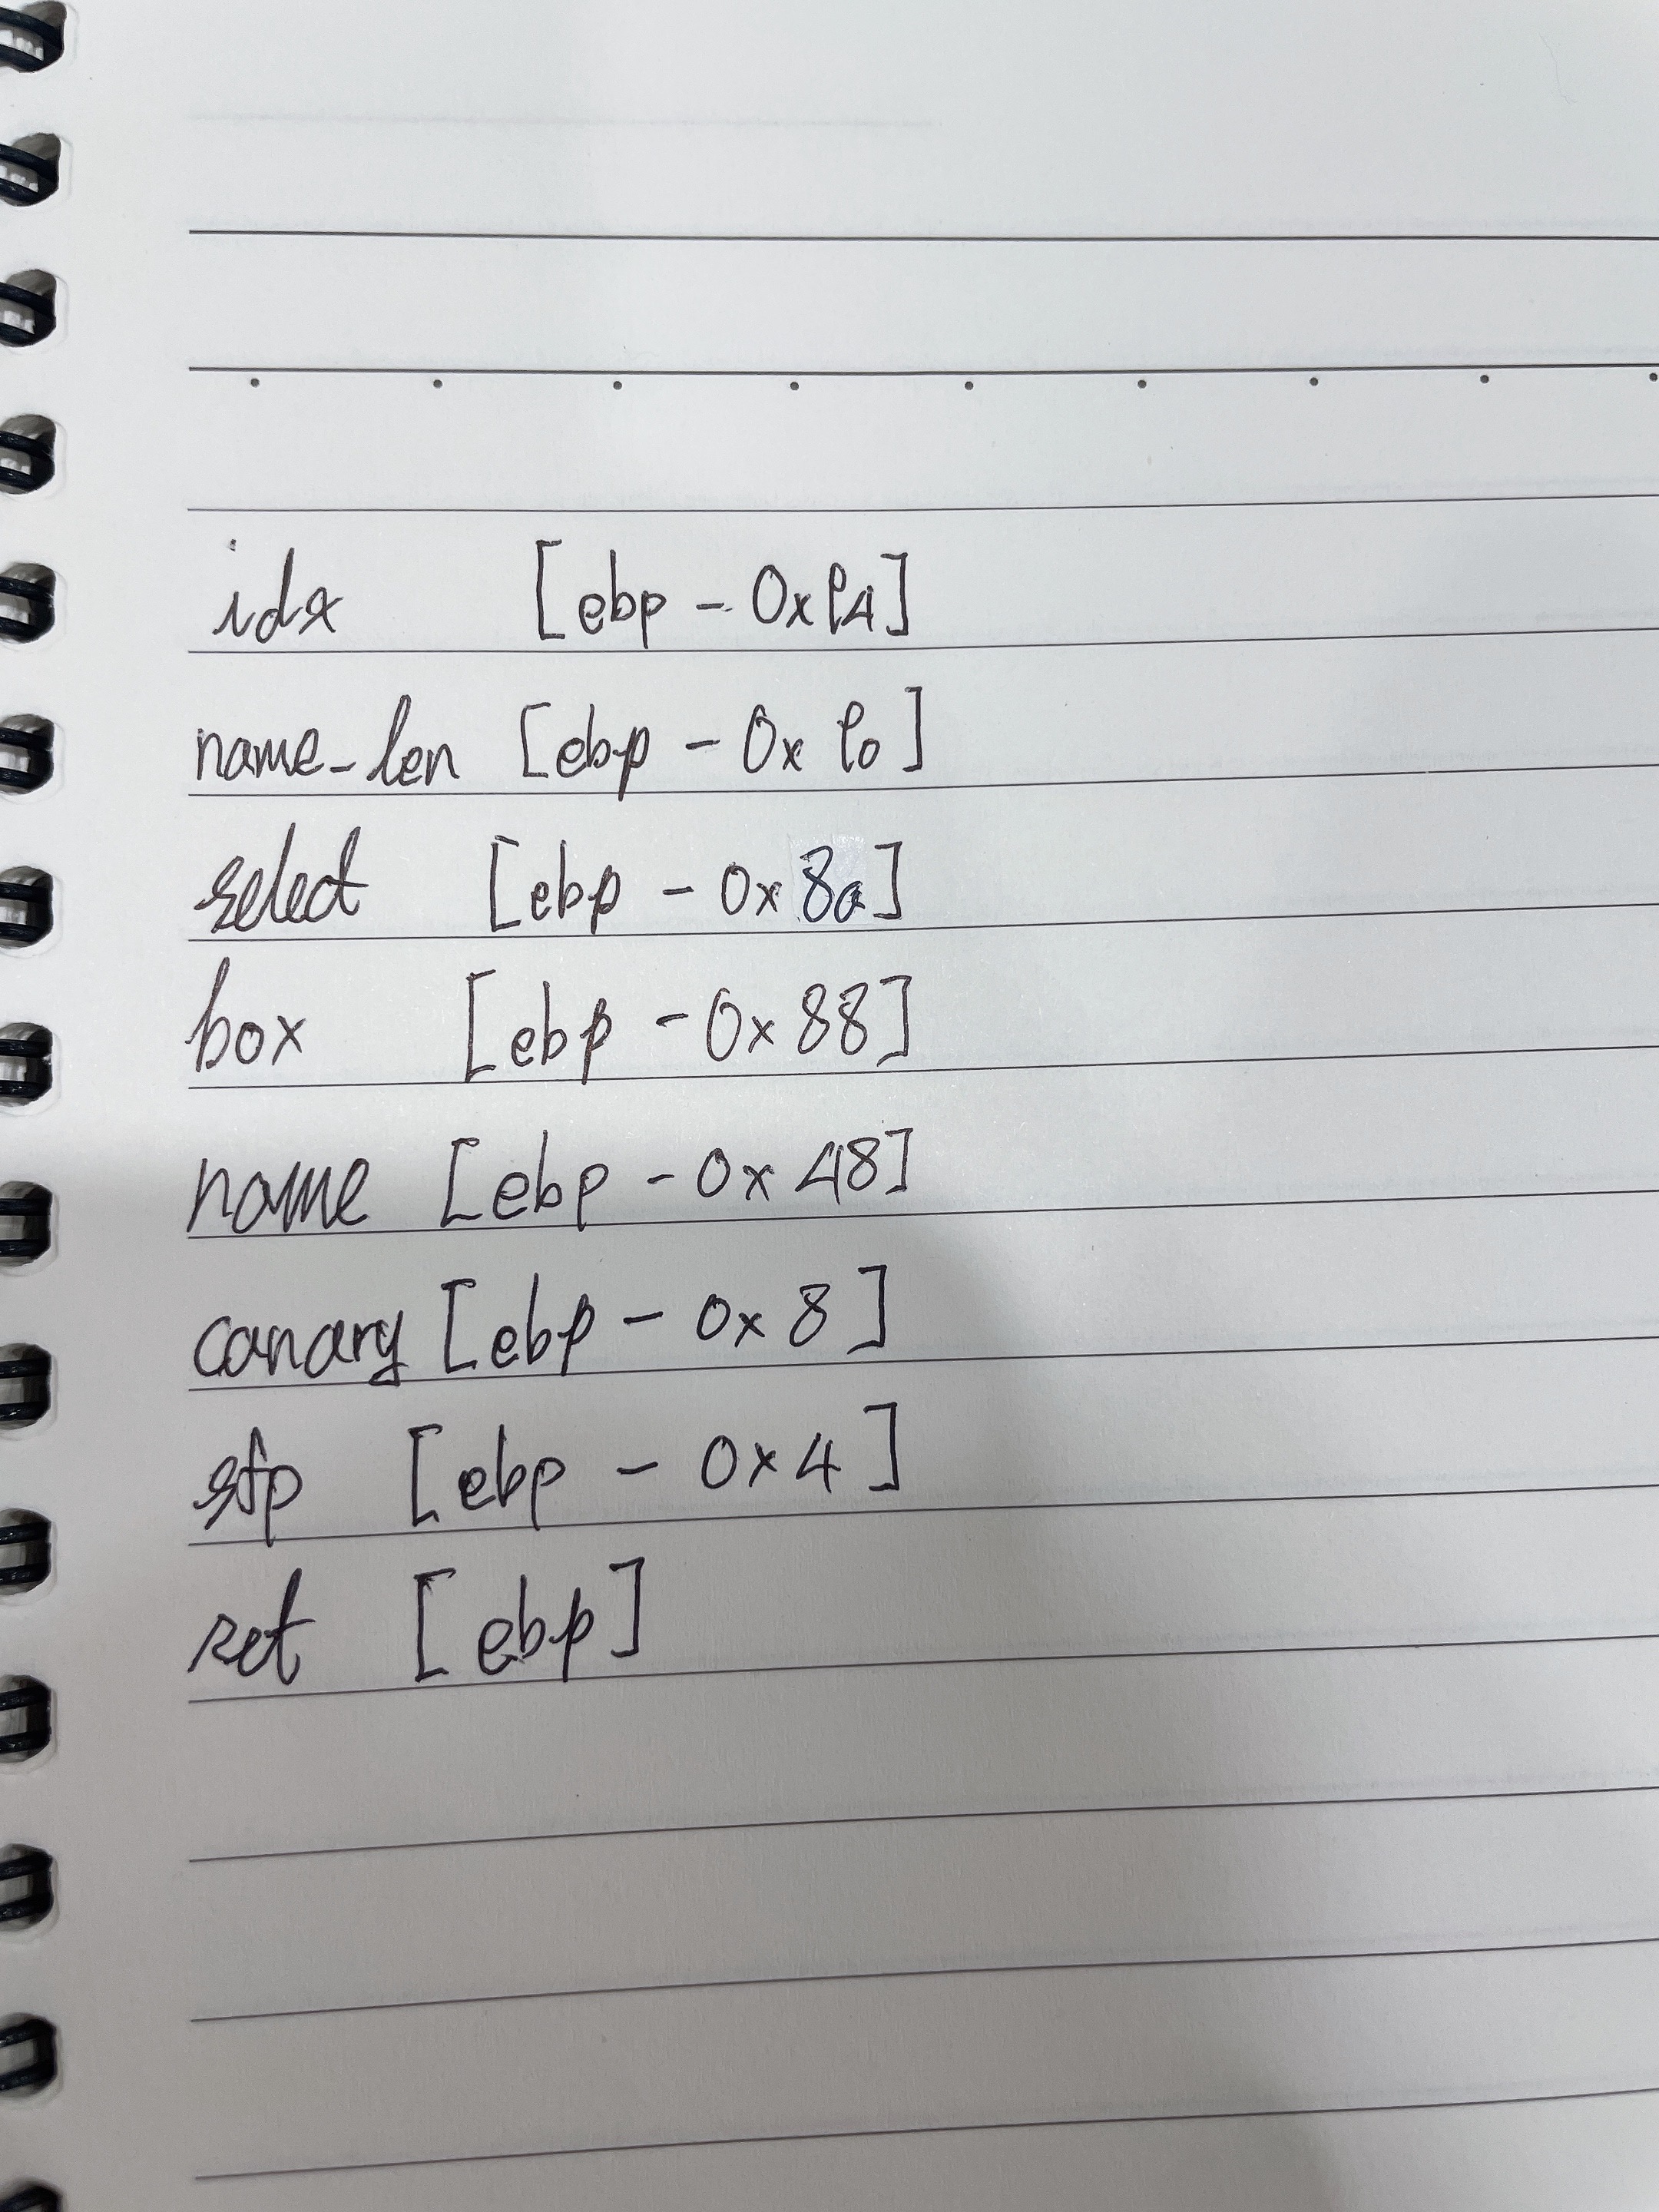 idx [ebp - 0x94]
name_len [ebp - 0x90]
select [ebp - 0x8a]
box [ebp - 0x88]
name [ebp - 0x48]
canary [ebp - 0x8]
sfp [ebp - 0x4]
ret [ebp]